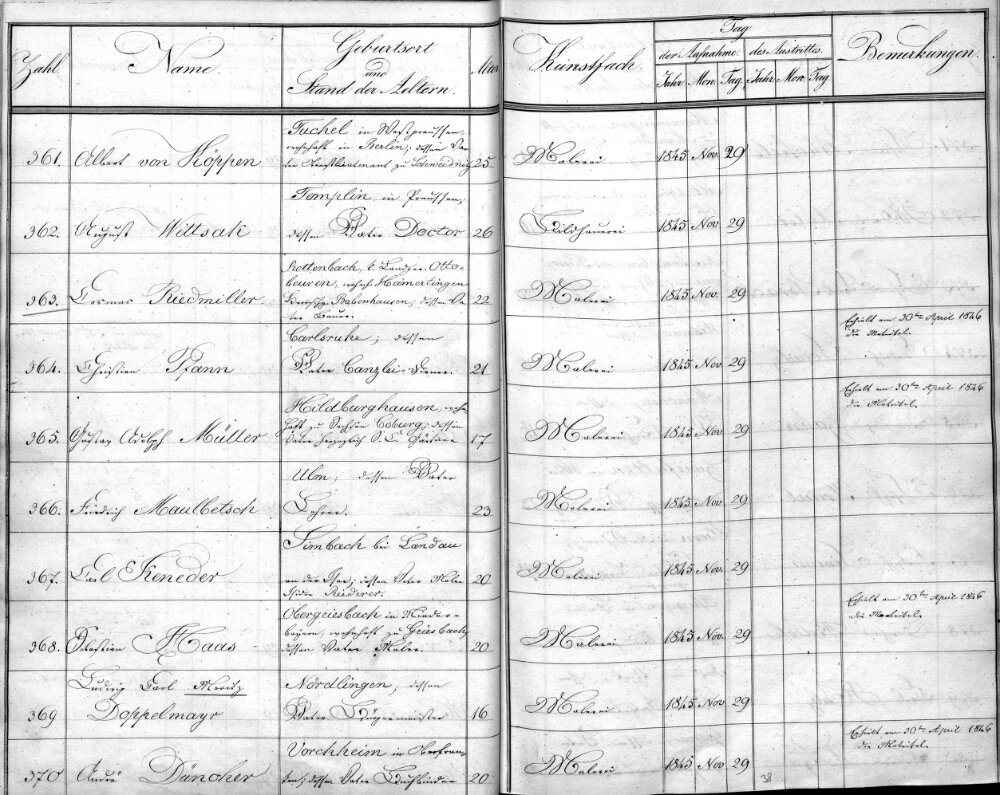 Zahl Name. Geburtsort und Stand der Aeltern. Alter Kunstfach. Tag der Aufnahme. des Austrittes. Bemerkungen.
Jahr Mon. Tag. Jahr Mon. Tag.
361. Albert von Köppen
Tuchel in Westpreussen,
wohnhaft in Berlin; dessen Va-
ter Oberstlieutenant zu
25 Malerei 1845 Nov. 29
362. August Wittsak
Templin, in Preussen,
dessen Vater Doctor
26 Bildhauerei 1845 Nov. 29
363. Cosmas Riedmiller
Rettenbach, k. Landger. Otto-
beuren, wohnh. Heimertingen
Babenhausen; dessen Va-
ter Bauer.
22 Malerei 1845 Nov. 29
364. Christian Pfann
Carlsruhe; dessen
Vater Canzlei-Diener.
21 Malerei 1845 Nov. 29
Erhielt am 30ten April 1846
die Matrikel.
365. Gustav Adolph Müller
Hildburghausen, wohn-
haft zu Sachsen Coburg; dessen
Vater herzoglich S. C.
17 Malerei 1845 Nov. 29
Erhielt am 30ten April 1846
die Matrikel.
366. Friedrich Maulbetsch
Ulm; dessen Vater
Lehrer.
23 Malerei 1845 Nov. 29
367. Carl Keneder
Simbach bei Landau
an der Isar; dessen Vater Maler
Isidor Riederer.
20 Malerei 1845 Nov. 29
368. Sebastian Haas
Obergriesbach in Nieder-
bayern, wohnhaft zu Griesbach,
dessen Vater Maler.
20 Malerei 1845 Nov. 29
Erhielt am 30ten April 1846
die Matrikel.
369 Ludwig Carl Moritz
Doppelmayr
Nördlingen; dessen
Vater Bürgermeister
16 Malerei 1845 Nov 29
370 André Däncher
Vorchheim in Oberfran-
ken; dessen Vater Buchbinder
20 Malerei 1845 Nov. 29
Erhielt am 30ten April 1846
die Matrikel.